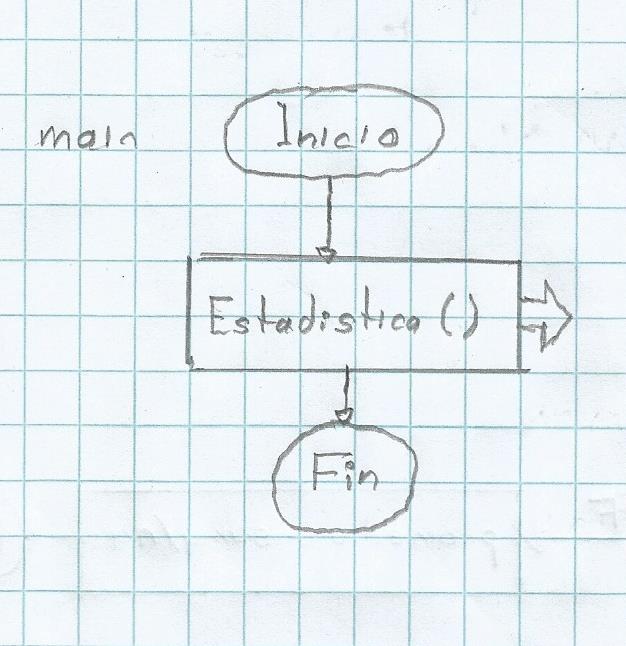 main
Inicio
Estadistica ()
Fin